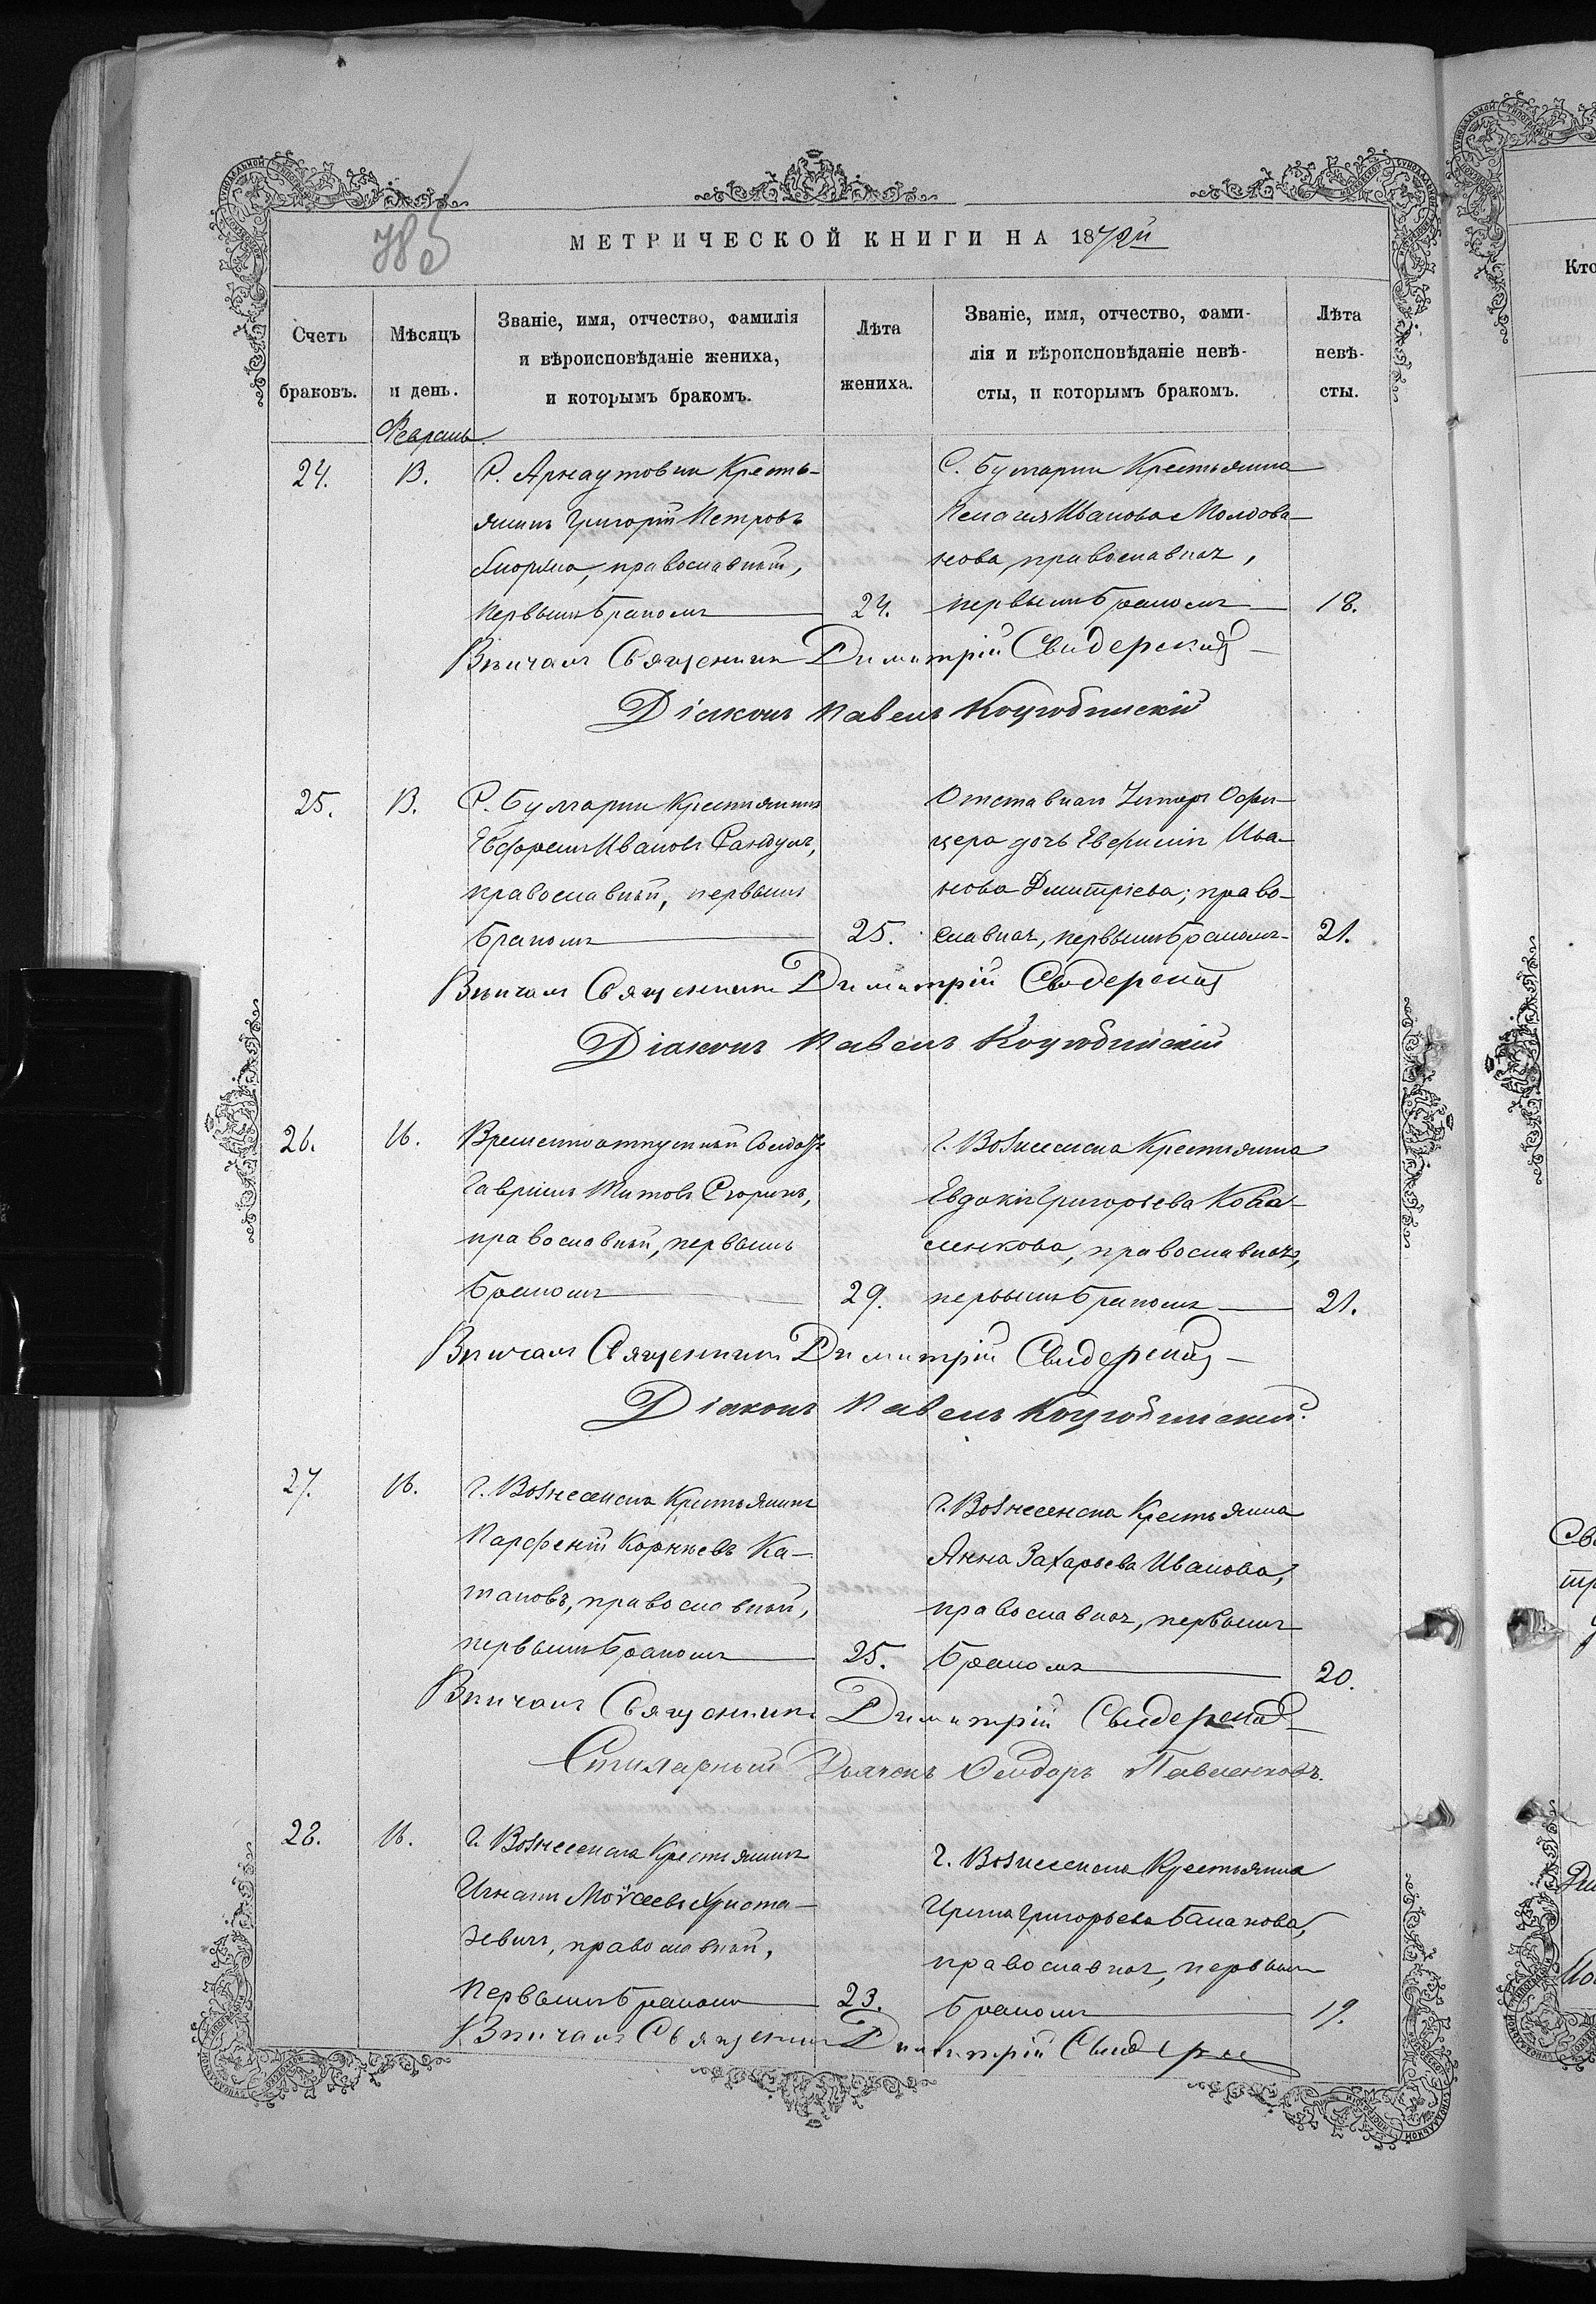 785
МЕТРИЧЕСКОЙ КНИГИ НА 1872й
Счетъ браковъ.
Мѣсяцъ и день.
Званіе, имя, отчество, фамилія и вѣроисповѣданіе жениха, и которымъ бракомъ.
Лѣта жениха.
Званіе, имя, отчество, фами-
лія и вѣроисповѣданіе невѣ-
сты, и которымъ бракомъ.
Лѣта невѣ-
сты.
Февраль.
24.
13.
С. Арнаутовки Кресть-
янинъ Григорій Петровъ
православный,
первымъ бракомъ
24.
С. Булгарки Крестьянка
Пелагія Иванова Молдова-
нова, православная,
первымъ бракомъ
18.
Вѣнчалъ Священникъ Димитрій Свидерскій
Діаконъ Павелъ Коцюбинскій
25.
13.
С. Булгарки Крестьянинъ
Евфремъ Ивановъ Сандулъ,
православный, первымъ
бракомъ
25.
Отставнаго Унтеръ Офи-
цера дочь Ива-
нова Дмитріева; право-
славная, первымъ бракомъ
21.
Вѣнчалъ Священникъ Димитрій Свидерскій
Діаконъ Павелъ Коцюбинскій
26.
16.
Временноотпускной Солдатъ
Гавріилъ Титовъ
православный, первымъ
бракомъ
29.
г. Вознесенска Крестьянка
Евдокія Григорьева Кова-
ленкова, православная,
первымъ бракомъ
21.
Вѣнчалъ Священникъ Димитрій Свидерскій
Діаконъ Павелъ Коцюбинскій.
27.
16.
г. Вознесенска Крестьянинъ
Парфеній Корнѣевъ Ка-
тановъ, православный,
первымъ бракомъ
25.
г. Вознесенска Крестьянка
Анна Захарьева Иванова,
православная, первымъ
бракомъ
20.
Вѣнчалъ Священникъ Димитрій Свидерскій
Стихарный Дьячокъ Феодоръ Павленковъ.
28.
16.
г. Вознесенска Крестьянинъ
Игнатій Моѵсеевъ
православный,
первымъ бракомъ
23.
г. Вознесенска Крестьянка
Ирина Григорьева Балакова,
православная, первымъ
бракомъ
19.
Вѣнчалъ Священникъ Димитрій Свидерскій
Кто